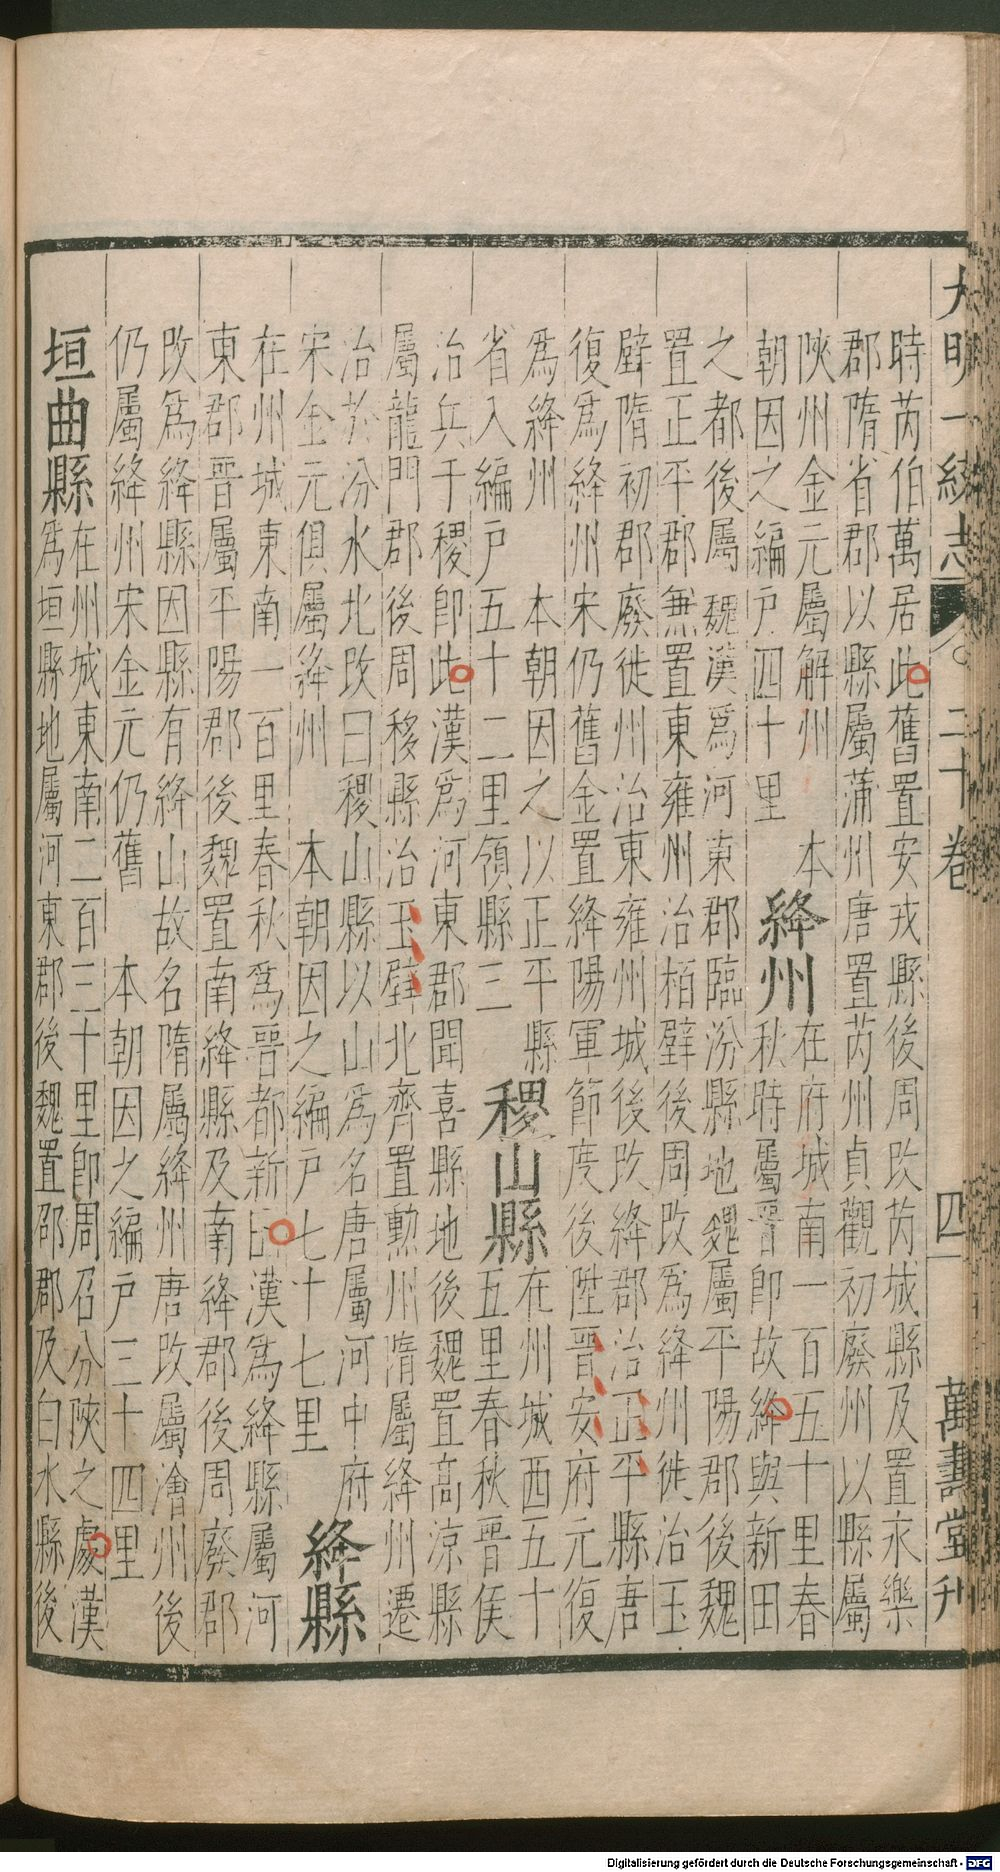 大明一統志 二十卷 四 萬壽堂刊
時芮伯萬居此舊置安戎縣後周改芮城縣及置永樂
郡隋省郡以縣屬蒲州唐置芮州貞觀初廢州以縣屬
陜州金元屬解州 本
朝因之編戶四十里
絳州
在府城南一百五十里春
秋時屬晉即故絳與新田
之都後屬魏漢為河東郡臨汾縣地魏屬平陽郡後魏
置正平郡無置東雍州治栢壁後周改為絳州徙治玉
壁隋初郡廢徙州治東雍州城後改絳郡治正平縣唐
復為絳州宋仍舊金置絳陽軍節度後陞晉安府元復
為絳州 本朝因之以正平縣
省入編戶五十二里領縣三
稷山縣
在州城西五十
五里春秋晉侯
治兵于稷即此漢為河東郡聞喜縣地後魏置高涼縣
屬龍門郡後周移縣治玉壁北齊置勲州隋屬絳州遷
治於汾水北改曰稷山縣以山為名唐屬河中府
宋金元俱屬絳州 本朝因之編戶七十七里
絳縣
在州城東南一百里春秋為晉都新田漢為絳縣屬河
東郡晉屬平陽郡後魏置南絳縣及南絳郡後周廢郡
改為絳縣因縣有絳山故名隋屬絳州唐改屬澮州後
仍屬絳州宋金元仍舊 本朝因之編戶三十四里
垣曲縣
在州城東南二百三十里即周召分陜之處漢
為垣縣地屬河東郡後魏置邵郡及白水縣後
Digitalisierung gefördert durch die Deutsche Forschungsgemeinschaft - DFG